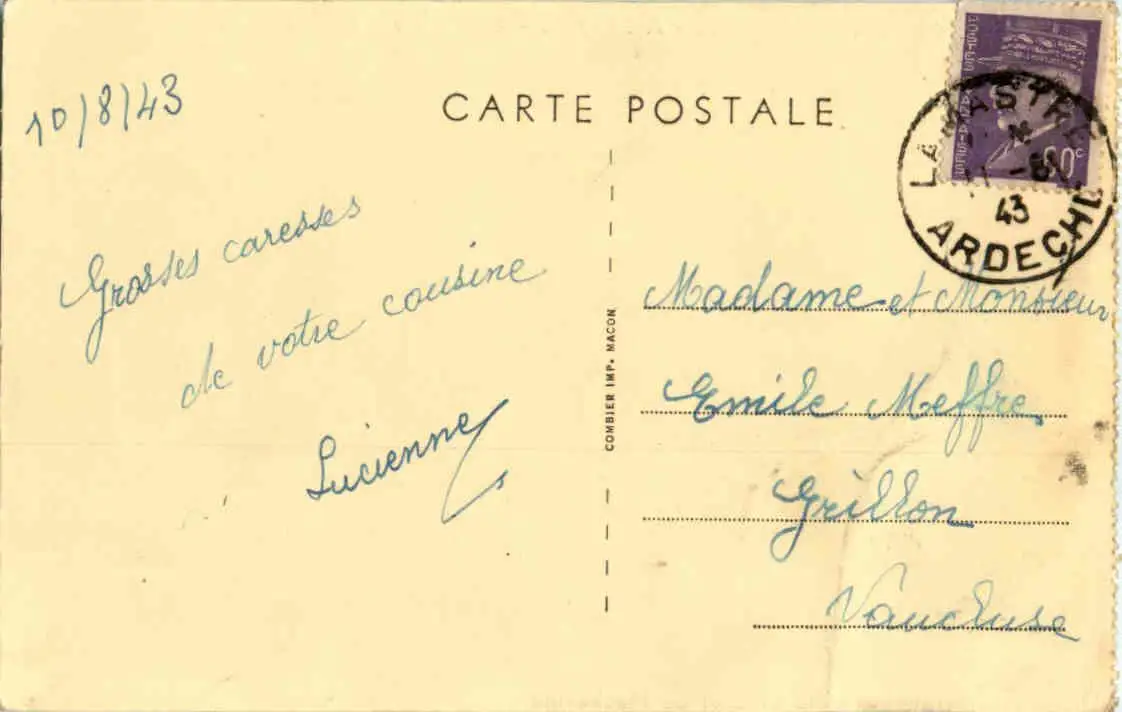 10/8/43
CARTE POSTALE
Grosses caresses
de votre cousine
Lucienne
COMBIER IMP. MACON
LAMASTRE
11 -8
43
ARDECHE
POSTES FRANÇAISES
60c
Madame et Monsieur
Emile Meffre
Grillon
Vaucluse